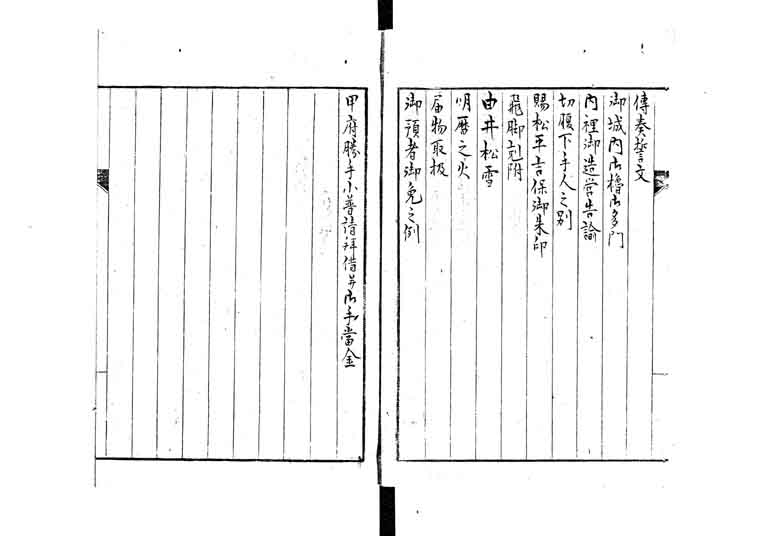 傳奏誓文
御城内御櫓御多門
内裡御造営告諭
切腹下手人之别
賜松平吉保御朱印
飛脚刻附
由井松雪
明暦之火
届物取扱
御預者御免之例
甲府勝手小普請拜借并御手當金